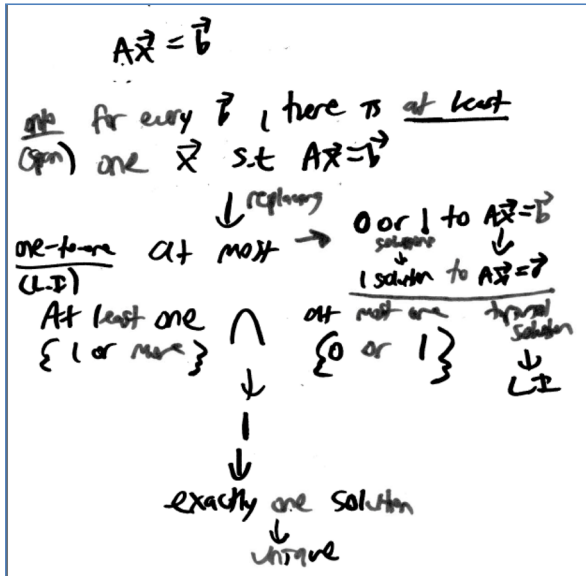 Ax⃗ = b⃗
onto for every b⃗, there is at least
(span) one x⃗ s.t Ax⃗=b⃗
↓ replacing
one-to-one at most → 0 or 1 to Ax⃗=b⃗
(L.I) solutions
↓ ↓
1 solution to Ax⃗=0⃗
At least one ∩ at most one trivial solution
{1 or more} {0 or 1} ↓
L I
↓
1
↓
exactly one solution
↓
unique